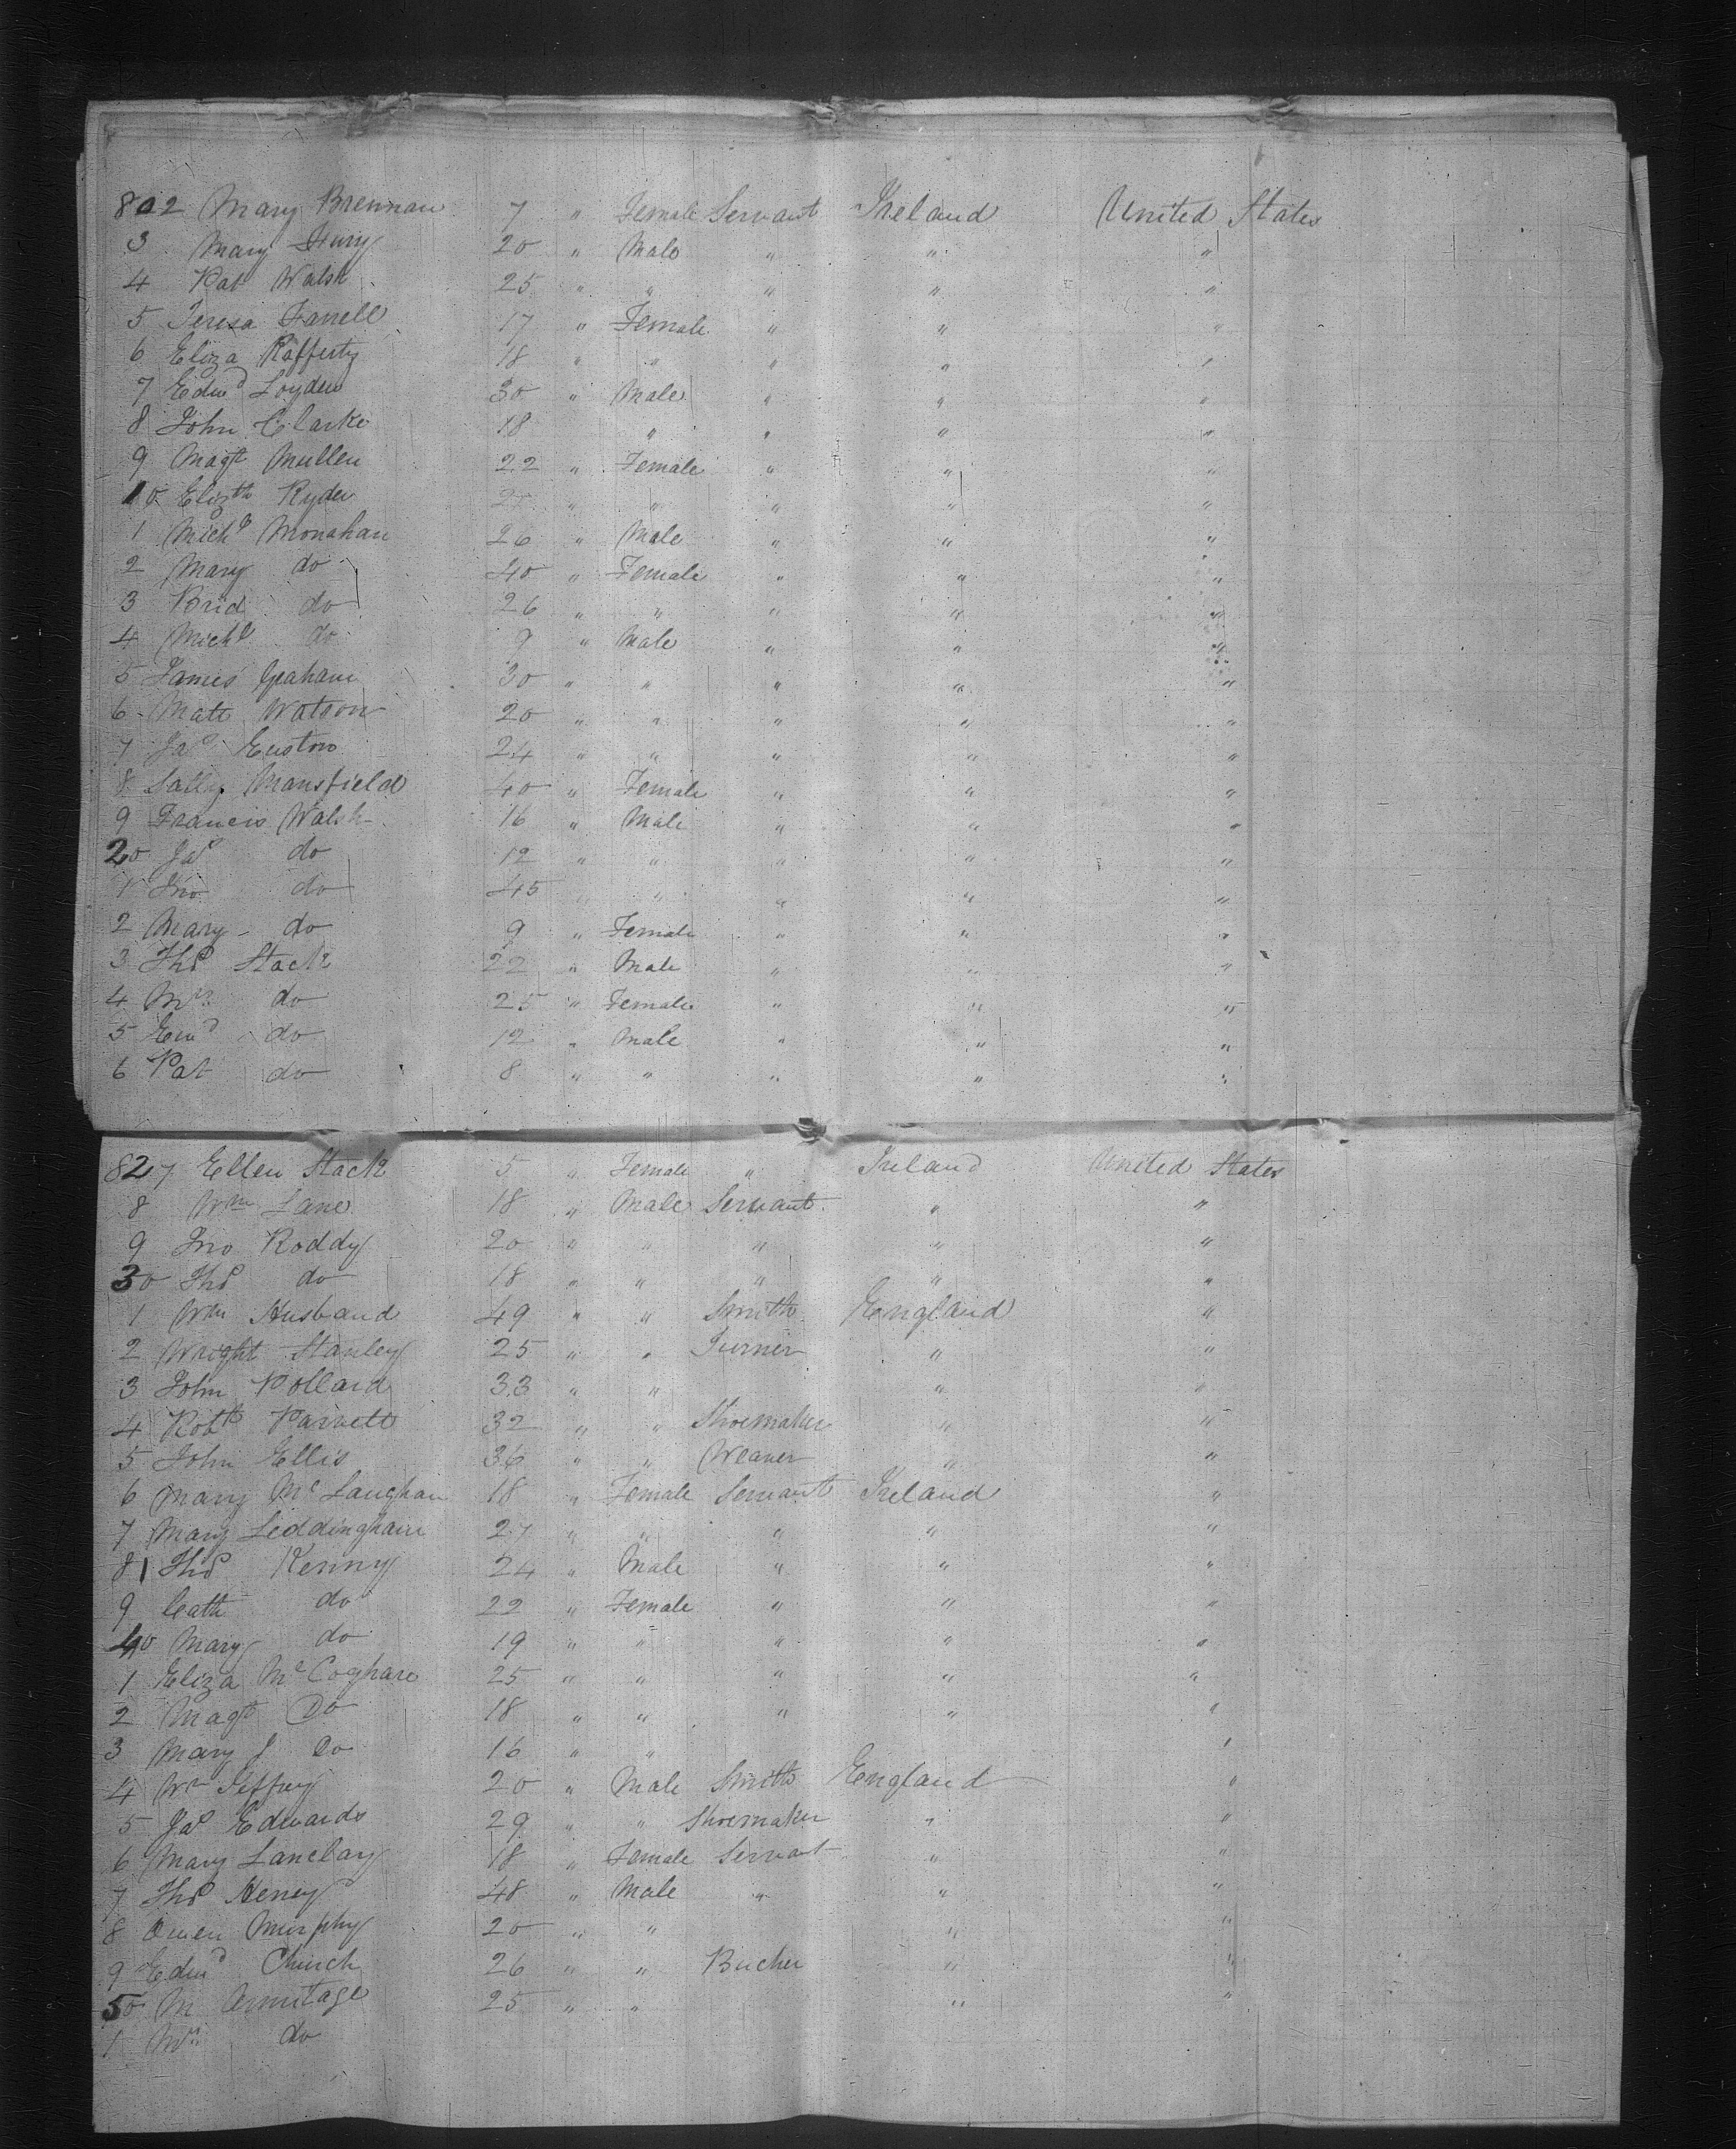 802 Mary Brennan 7 " Female Servant Ireland United States
3 Mary 20 " Male " " "
4 Pat Walsh 25 " " " " "
5 Teresa Farrell 17 " Female " " "
6 Eliza Rafferty 18 " " " " "
7 Edwd Loyden 30 " Male " " "
8 John Clarke 18 " " " "
9 Magt Mullen 22 " Female " " "
10 Elizth Ryder " " " " "
1 Michl Monahan 26 " Male " " "
2 Mary do 40 " Female " " "
3 Brid do 26 " " " " "
4 Michl do 9 " Male " " "
5 James Graham 30 " " " " "
6 Matt Watson 20 " " " " "
7 Jas 24 " " " " "
8 Sally Mansfield 40 " Female " " "
9 Francis Walsh 16 " Male " " "
20 Jas do 12 " " " " "
1 Jno do 45 " " " " "
2 Mary do 9 " Female " " "
3 Thos Stack 22 " Male " " "
4 Mrs do 25 " Female " " "
5 do 12 " Male " " "
6 Pat do 8 " " " " "
827 Ellen Stack 5 " Female " Ireland United States
8 Wm Lane 18 " Male Servant " "
9 Jno Roddy 20 " " " " "
30 Thos do 18 " " " " "
1 Wm Husband 49 " " Smith England "
2 Wright Stanley 25 " " Turner " "
3 John Pollard 33 " " " "
4 Robt 32 " " Shoemaker " "
5 John Ellis 36 " " Weaver " "
6 Mary McLaughan 18 " Female Servant Ireland "
7 Mary Leddingham 27 " " " " "
8 Thos Kenny 24 " Male " " "
9 Cath do 22 " Female " " "
40 Mary do 19 " " " " "
1 Eliza 25 " " " " "
2 Magt Do 18 " " " " "
3 Mary J Do 16 " " "
4 Wm Jeffrey 20 " Male Smith England "
5 Jas Edwards 29 " " Shoemaker " "
6 Mary Lanclay 18 " Female Servant " "
7 Thos Heney 48 " Male " " "
8 Owen Murphy 20 " " " "
9 Edwd Church 26 " " Bucher " "
50 M Armitage 25 " " " "
1 Mrs do